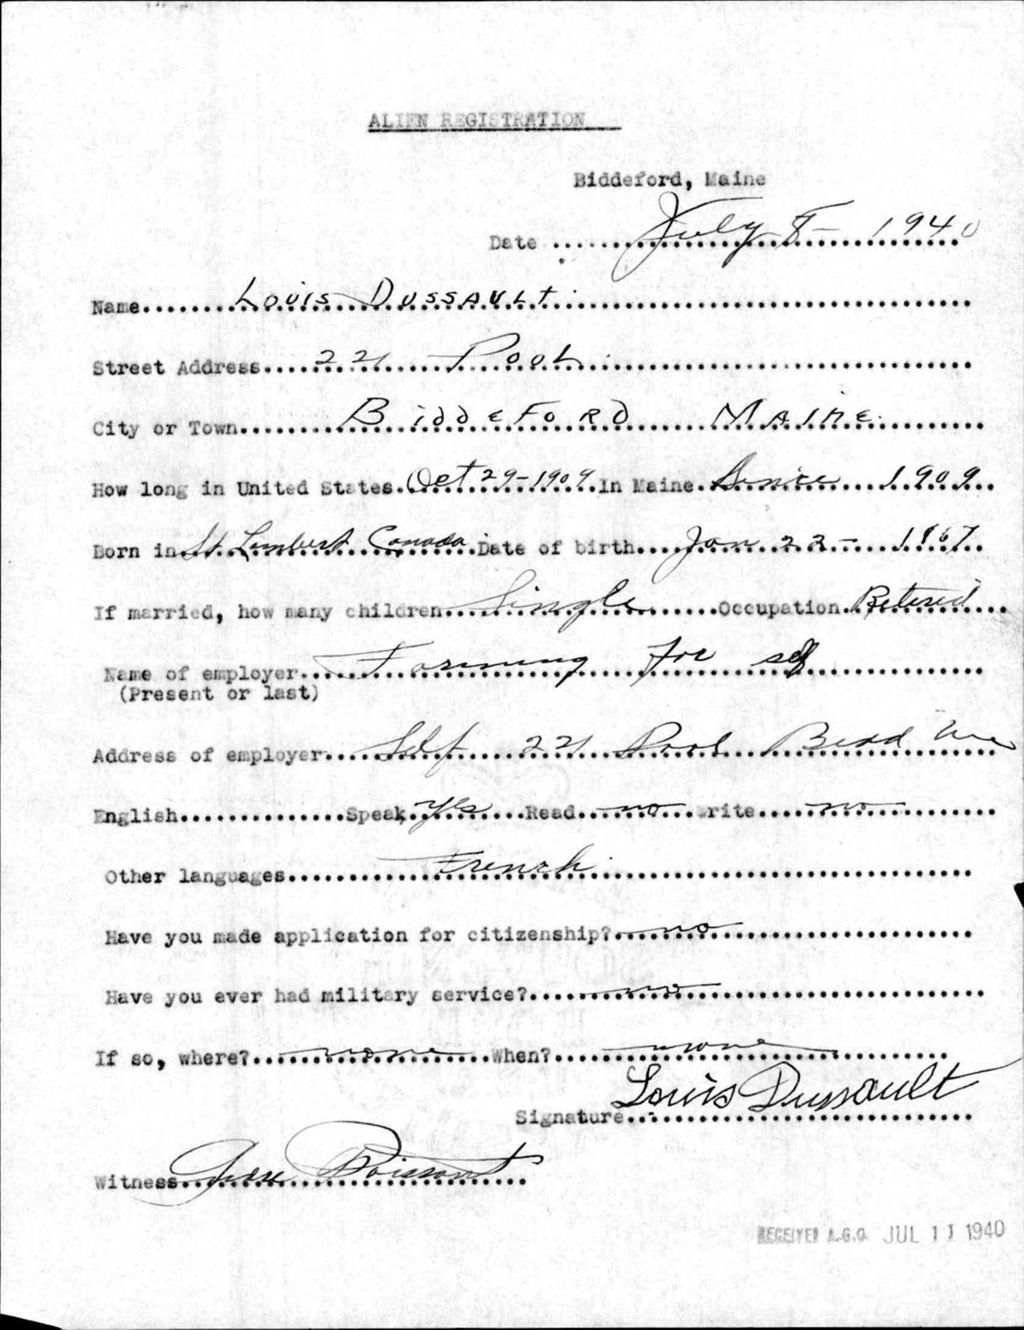 ALIEN REGISTRATION
Biddeford, Maine
Date ........July-8- 1940
Name........Louis Dussault........
Street Address....221 Pool........
City or Town........Biddeford Maine........
How long in United States.Oct 29-1909.In Maine.Since 1909..
Born in St. Lambert Canada.Date of birth....Jan 22- 1867..
If married, how many children....Single......Occupation.Retered....
Name of employer....Farming for self........
(Present or last)
Address of employer....Self 221 Pool Bidd Me
English..............Speak.Yes......Read....no....write....no........
Other languages........French........
Have you made application for citizenship?....no........
Have you ever had military service?........no........
If so, where?........none......When?........none........
Signature..Louis Dussault
Witness.. Poissant
RECEIVED A.G.O. JUL 11 1940